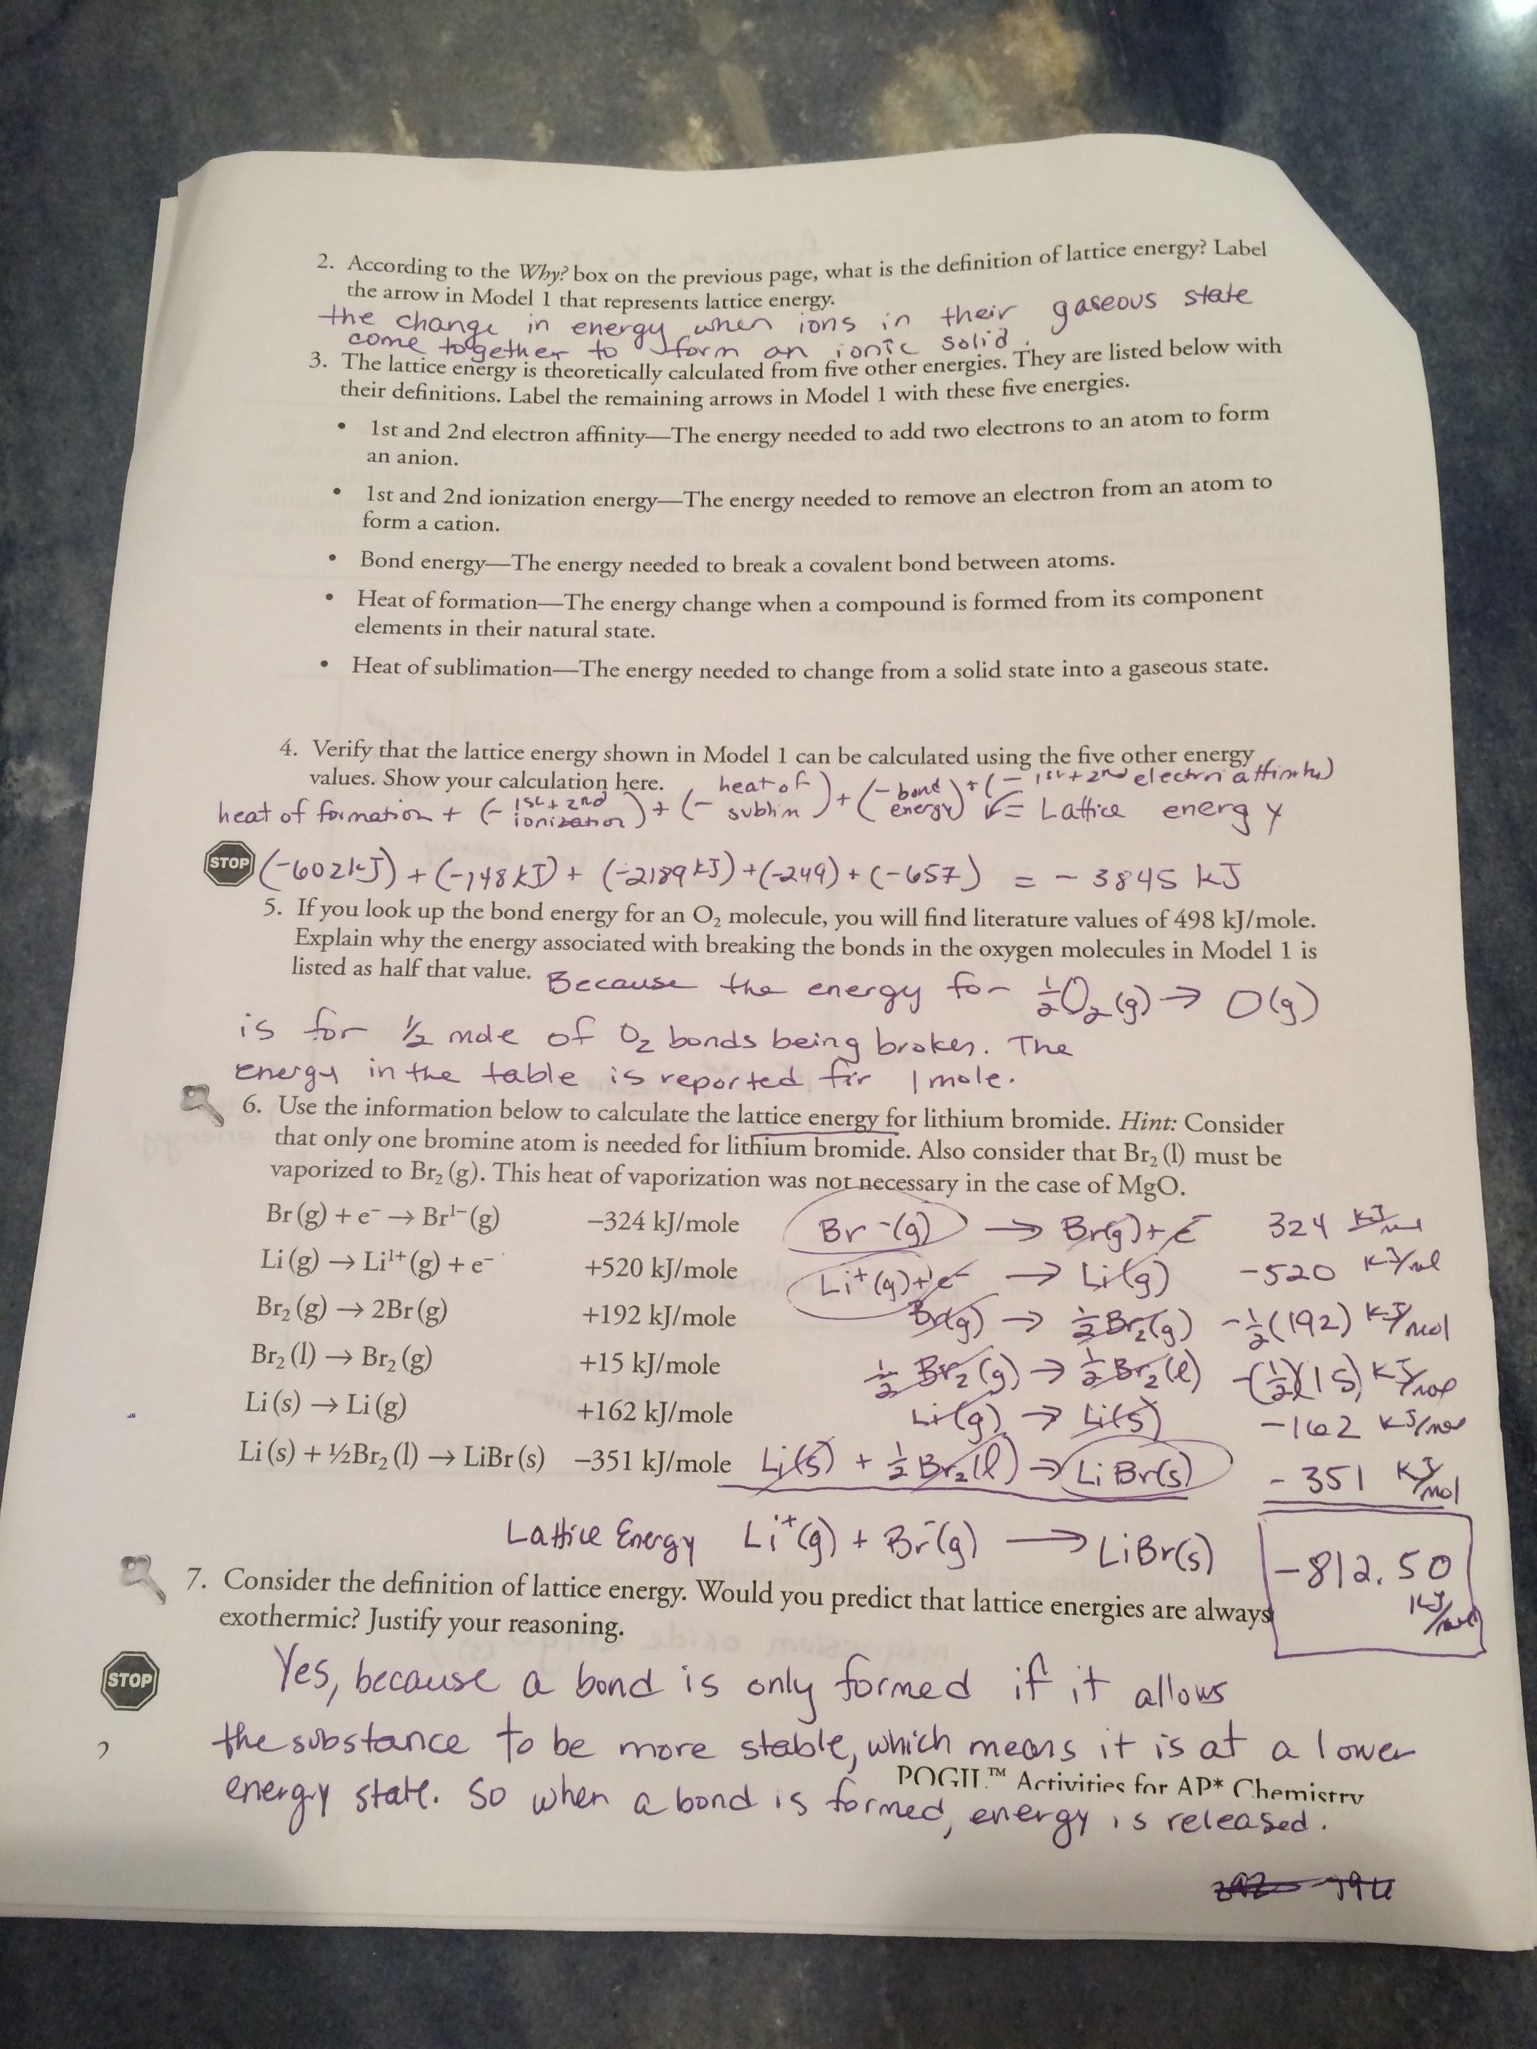 2. According to the Why? box on the previous page, what is the definition of lattice energy? Label
the arrow in Model 1 that represents lattice energy.
the change in energy when ions in their gaseous state
come together to form an ionic solid.
3. The lattice energy is theoretically calculated from five other energies. They are listed below with
their definitions. Label the remaining arrows in Model 1 with these five energies.
• 1st and 2nd electron affinity—The energy needed to add two electrons to an atom to form
an anion.
• 1st and 2nd ionization energy—The energy needed to remove an electron from an atom to
form a cation.
• Bond energy—The energy needed to break a covalent bond between atoms.
• Heat of formation—The energy change when a compound is formed from its component
elements in their natural state.
• Heat of sublimation—The energy needed to change from a solid state into a gaseous state.
4. Verify that the lattice energy shown in Model 1 can be calculated using the five other energy
values. Show your calculation here.
heat of formation + (- 1st + 2nd ionization) + (- heat of sublim) + (- bond energy) + (- 1st + 2nd electron affinity) = Lattice energy
STOP (-602kJ) + (-148kJ) + (-2189kJ) + (-249) + (-657) = - 3845 kJ
5. If you look up the bond energy for an O₂ molecule, you will find literature values of 498 kJ/mole.
Explain why the energy associated with breaking the bonds in the oxygen molecules in Model 1 is
listed as half that value. Because the energy for ½O₂(g) → O(g)
is for ½ mole of O₂ bonds being broken. The
energy in the table is reported for 1 mole.
6. Use the information below to calculate the lattice energy for lithium bromide. Hint: Consider
that only one bromine atom is needed for lithium bromide. Also consider that Br₂ (l) must be
vaporized to Br₂ (g). This heat of vaporization was not necessary in the case of MgO.
Br (g) + e⁻ → Br¹⁻ (g) −324 kJ/mole Br⁻(g) → Br(g) + e⁻ 324 kJ/mol
Li (g) → Li¹⁺ (g) + e⁻ +520 kJ/mole Li⁺(g) + e⁻ → Li(g) -520 kJ/mol
Br₂ (g) → 2Br (g) +192 kJ/mole Br(g) → ½Br₂(g) -½(192) kJ/mol
Br₂ (l) → Br₂ (g) +15 kJ/mole ½ Br₂(g) → ½Br₂(l) -(½)(15) kJ/mol
Li (s) → Li (g) +162 kJ/mole Li(g) → Li(s) -162 kJ/mol
Li (s) + ½Br₂ (l) → LiBr (s) −351 kJ/mole Li(s) + ½ Br₂(l) → LiBr(s) - 351 kJ/mol
Lattice Energy Li⁺(g) + Br⁻(g) → LiBr(s) -812.50 kJ/mol
7. Consider the definition of lattice energy. Would you predict that lattice energies are always
exothermic? Justify your reasoning.
STOP Yes, because a bond is only formed if it allows
the substance to be more stable, which means it is at a lower
POGIL™ Activities for AP* Chemistry
energy state. So when a bond is formed, energy is released.